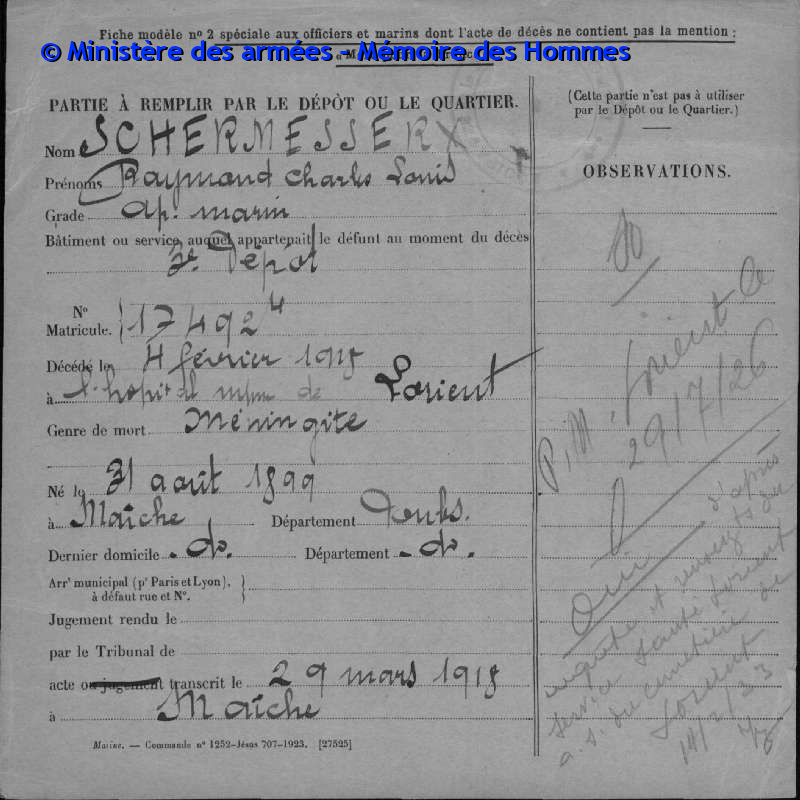 Fiche modèle nº 2 spéciale aux officiers et marins dont l'acte de décès ne contient pas la mention :
© Ministère des armées - Mémoire des Hommes
PARTIE À REMPLIR PAR LE DÉPÔT OU LE QUARTIER.
(Cette partie n'est pas à utiliser
par le Dépôt ou le Quartier.)
OBSERVATIONS.
Nom SCHERMESSER
Prénoms Raymond Charles Louis
Grade ap. marin
Bâtiment ou service auquel appartenait le défunt au moment du décès
3e Dépot
Nº
Matricule. 17492 4
Décédé le 4 février 1918
à l'hopital mme de Lorient
Genre de mort Méningite
Né le 31 août 1899
à Maîche Département Doubs.
Dernier domicile do. Département do.
Arrt municipal (pr Paris et Lyon),
à défaut rue et Nº.
Jugement rendu le
par le Tribunal de
acte ou jugement transcrit le 29 mars 1918
à Maîche
Marine. — Commande nº 1252-Jésus 707-1923. [27525]
P.M. Lorient le
29/7/26
Oui d'après
enquête et renseigts du
service santé Lorient
a.s. du cimetière de
Lorient
14/2/33